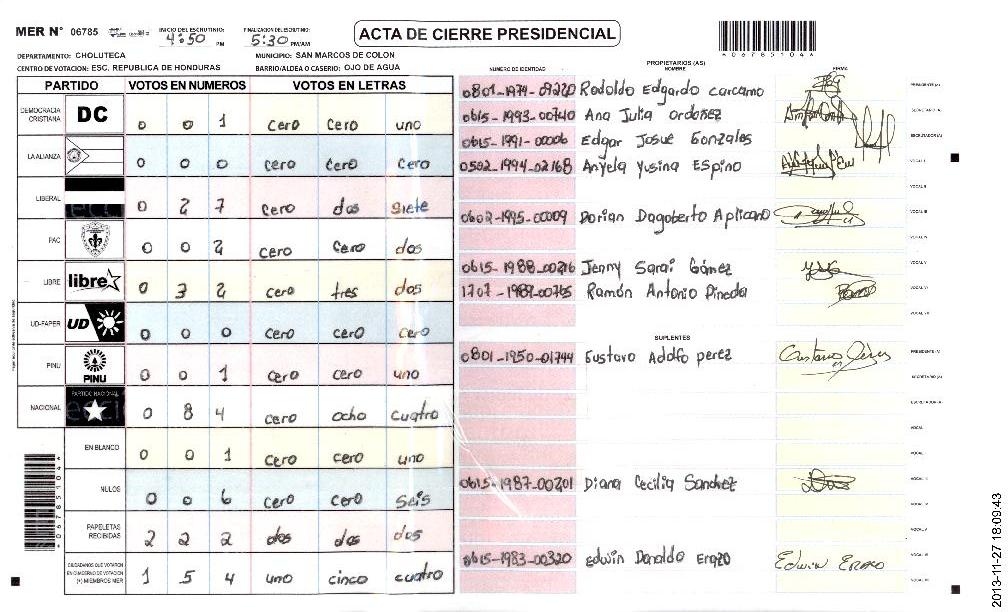 MER N° 06785
INICIO DEL ESCRUTINIO: 4:50 PM
FINALIZACION DEL ESCRUTINIO: 5:30 PM/AM
ACTA DE CIERRE PRESIDENCIAL
DEPARTAMENTO: CHOLUTECA
MUNICIPIO: SAN MARCOS DE COLON
CENTRO DE VOTACION: ESC. REPUBLICA DE HONDURAS
BARRIO/ALDEA O CASERIO: OJO DE AGUA
PARTIDO VOTOS EN NUMEROS VOTOS EN LETRAS
DEMOCRACIA CRISTIANA DC 0 0 1 cero cero uno
LA ALIANZA 0 0 0 cero cero cero
LIBERAL 0 2 7 cero dos siete
PAC 0 0 2 cero cero dos
LIBRE libre 0 3 2 cero tres dos
UD-FAPER UD 0 0 0 cero cero cero
PINU PINU 0 0 1 cero cero uno
NACIONAL PARTIDO NACIONAL 0 8 4 cero ocho cuatro
EN BLANCO 0 0 1 cero cero uno
NULOS 0 0 6 cero cero seis
PAPELETAS RECIBIDAS 2 2 2 dos dos dos
CIUDADANOS QUE VOTARON EN CUADERNO DE VOTACION (+) MIEMBROS MER 1 5 4 uno cinco cuatro
NUMERO DE IDENTIDAD
PROPIETARIOS (AS)
NOMBRE
FIRMA
0801-1974-09220 Rodolfo Edgardo carcamo PRESIDENTE (A)
0615-1993-00740 Ana Julia ordoñez SECRETARIO (A)
0615-1991-00006 Edgar Josue Gonzales ESCRUTADOR (A)
0502-1994-02168 Angela Yusina Espino VOCAL I
VOCAL II
0602-1995-00009 Dorian Dagoberto Aplicano VOCAL III
VOCAL IV
0615-1988-00216 Jenny Sarai Gómez VOCAL V
1707-1987-00765 Ramón Antonio Pineda VOCAL VI
VOCAL VII
SUPLENTES
0801-1950-01744 Gustavo Adolfo perez PRESIDENTE (A)
SECRETARIO (A)
ESCRUTADOR (A)
VOCAL I
VOCAL II
0615-1987-00201 Diana Cecilia Sanchez VOCAL III
VOCAL IV
VOCAL V
0615-1983-00320 Edwin Donaldo Erazo Edwin Erazo VOCAL VI
VOCAL VII
067851044
067851044
2013-11-27 18:09:43